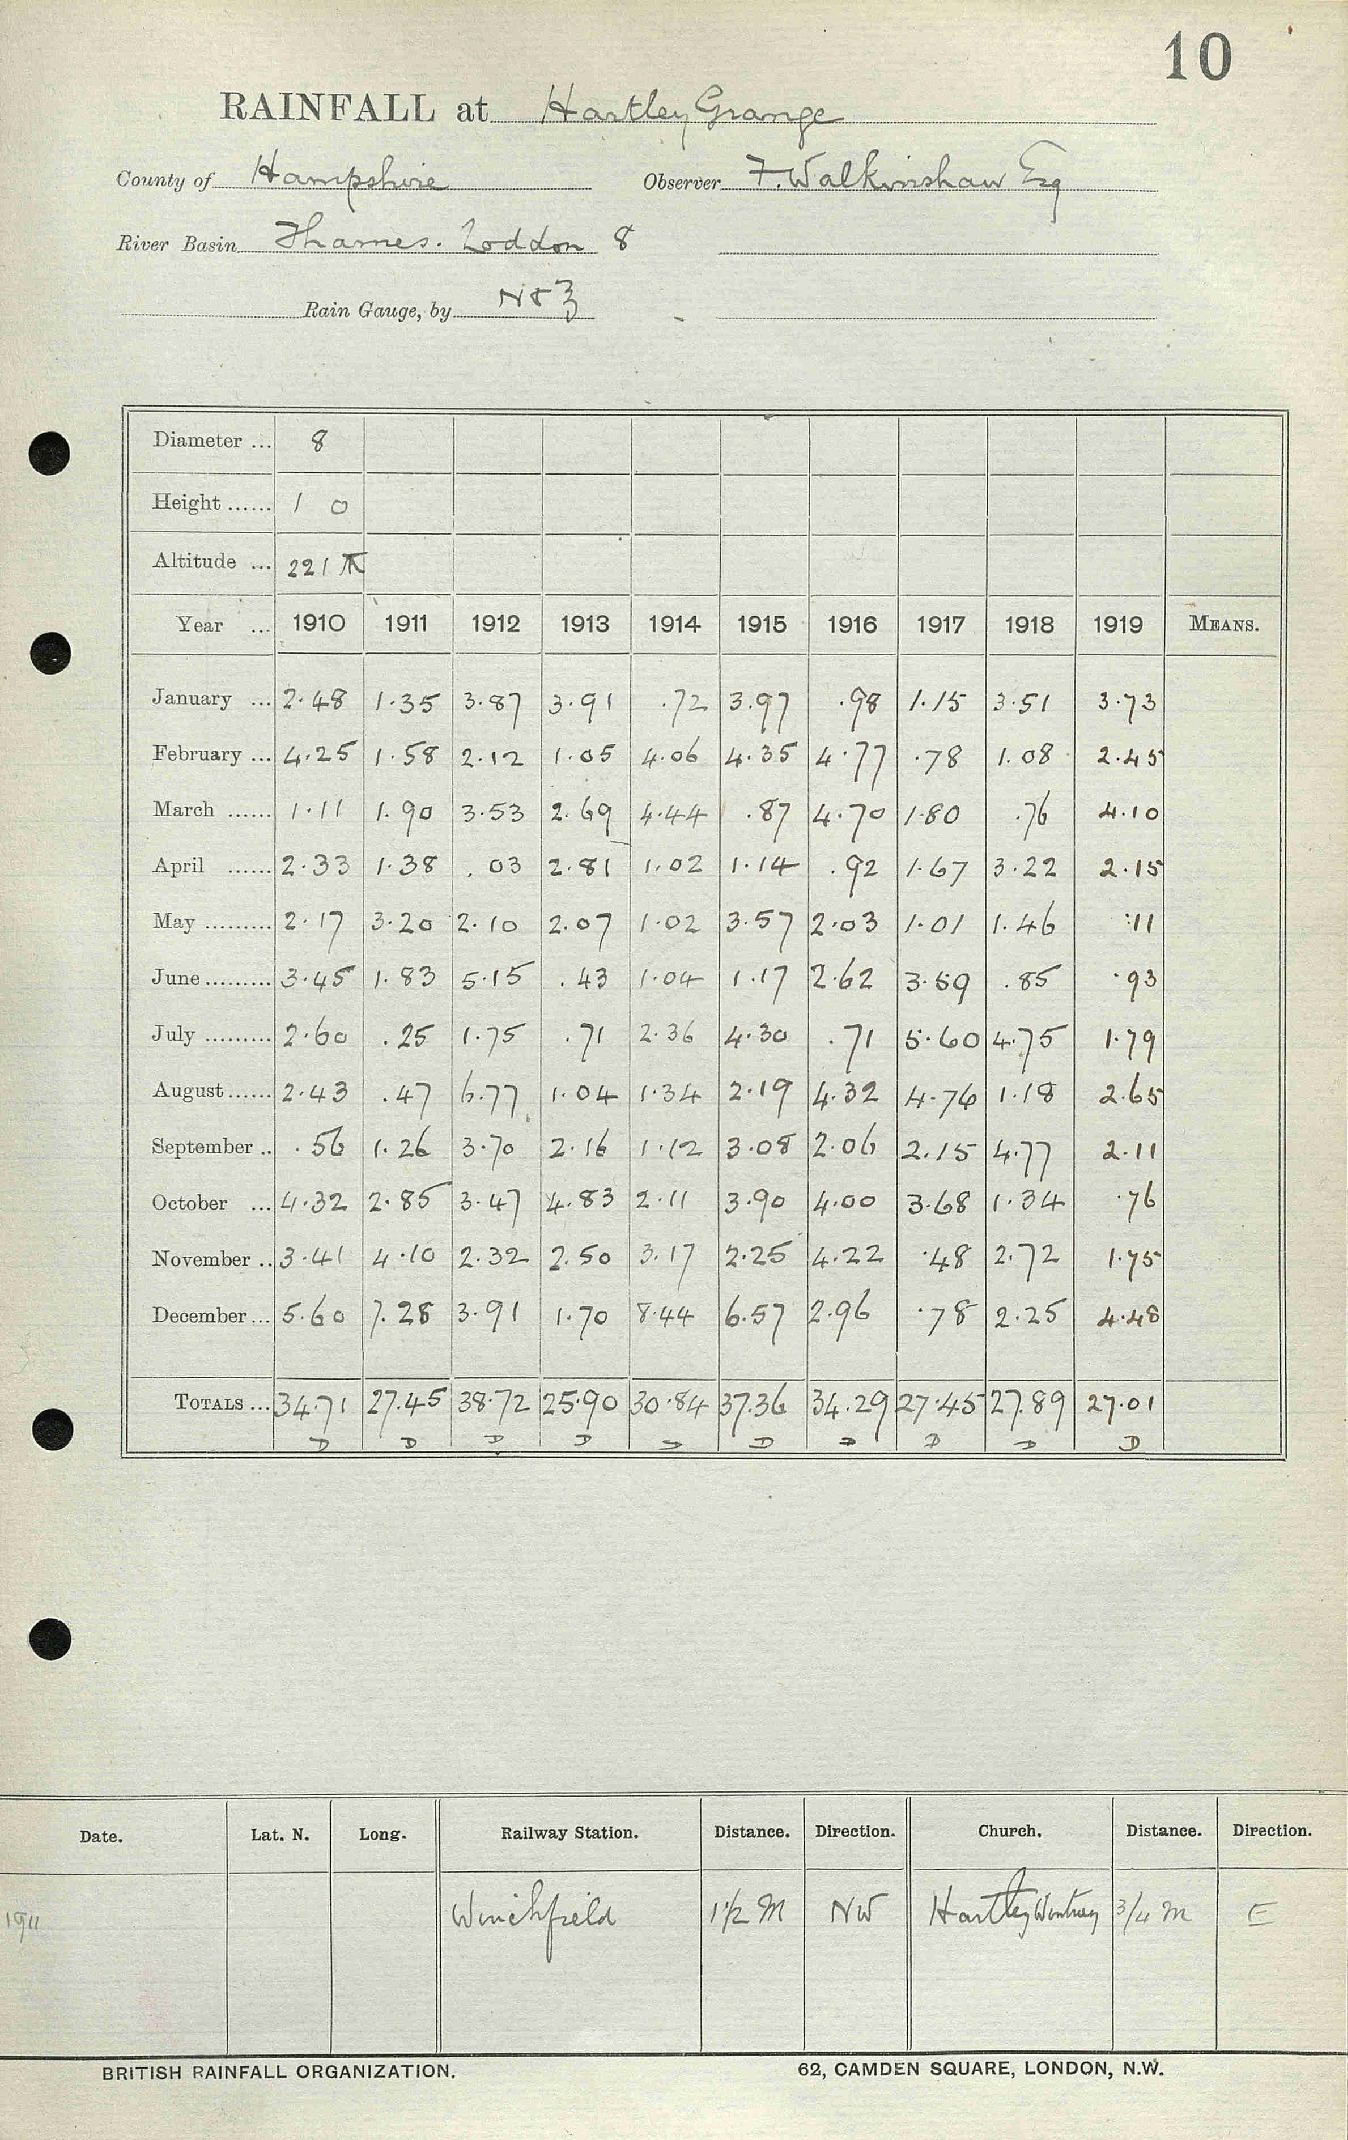 10
RAINFALL at Hartley Grange
County of Hampshire Observer F. Walkinshaw Esq
River Basin Thames. Loddon 8
Rain Gauge, by N & Z
Diameter ... 8
Height ...... 1 0
Altitude ... 221
Year ... 1910 1911 1912 1913 1914 1915 1916 1917 1918 1919 MEANS.
January ... 2.48 1.35 3.87 3.91 .72 3.97 .98 1.15 3.51 3.73
February ... 4.25 1.58 2.12 1.05 4.06 4.35 4.77 .78 1.08 2.45
March ...... 1.11 1.90 3.53 2.69 4.44 .87 4.70 1.80 .76 4.10
April ...... 2.33 1.38 .03 2.81 1.02 1.14 .92 1.67 3.22 2.15
May ......... 2.17 3.20 2.10 2.07 1.02 3.57 2.03 1.01 1.46 .11
June ......... 3.45 1.83 5.15 .43 1.04 1.17 2.62 3.59 .85 .93
July ......... 2.60 .25 1.75 .71 2.36 4.30 .71 5.60 4.75 1.79
August ...... 2.43 .47 6.77 1.04 1.34 2.19 4.32 4.76 1.18 2.65
September .. .56 1.26 3.70 2.16 1.12 3.08 2.06 2.15 4.77 2.11
October ... 4.32 2.85 3.47 4.83 2.11 3.90 4.00 3.68 1.34 .76
November .. 3.41 4.10 2.32 2.50 3.17 2.25 4.22 .48 2.72 1.75
December ... 5.60 7.28 3.91 1.70 8.44 6.57 2.96 .78 2.25 4.48
TOTALS ... 34.71 27.45 38.72 25.90 30.84 37.36 34.29 27.45 27.89 27.01
D D D D D D D D D D
Date. Lat. N. Long. Railway Station. Distance. Direction. Church. Distance. Direction.
1911 Winchfield 1½ M NW Hartley Wintney 3/4 M E
BRITISH RAINFALL ORGANIZATION. 62, CAMDEN SQUARE, LONDON, N.W.